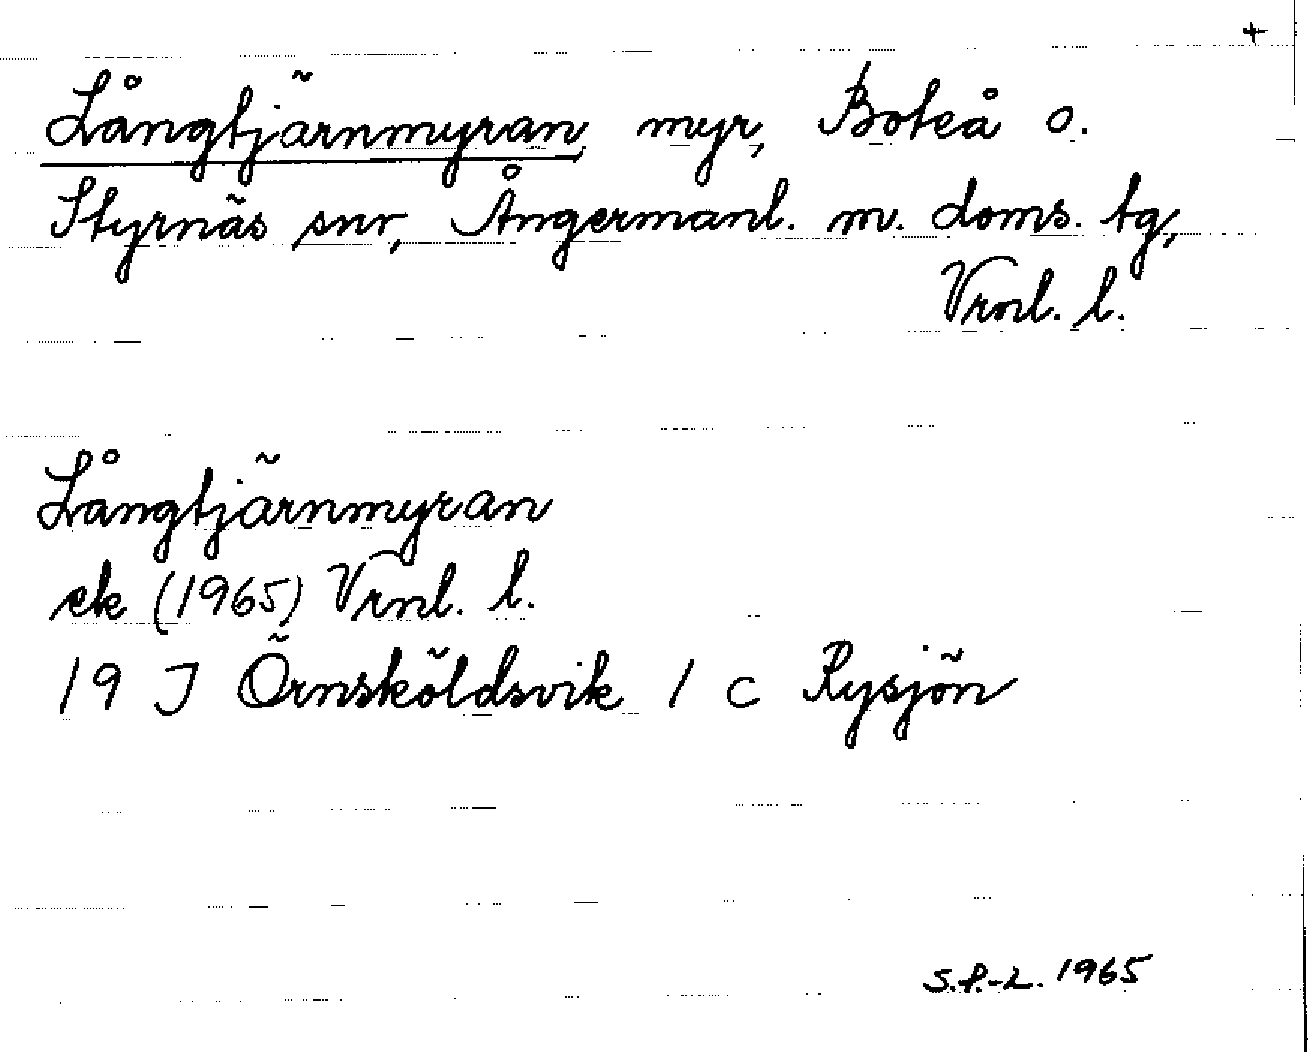 +
Långtjärnmyran, myr, Boteå o.
Styrnäs snr, Ångermanl. m. doms. tg,
Vrnl. l.
Långtjärnmyran
ek (1965) Vrnl. l.
19 J Örnsköldsvik 1 c Rysjön
S.P.-L. 1965